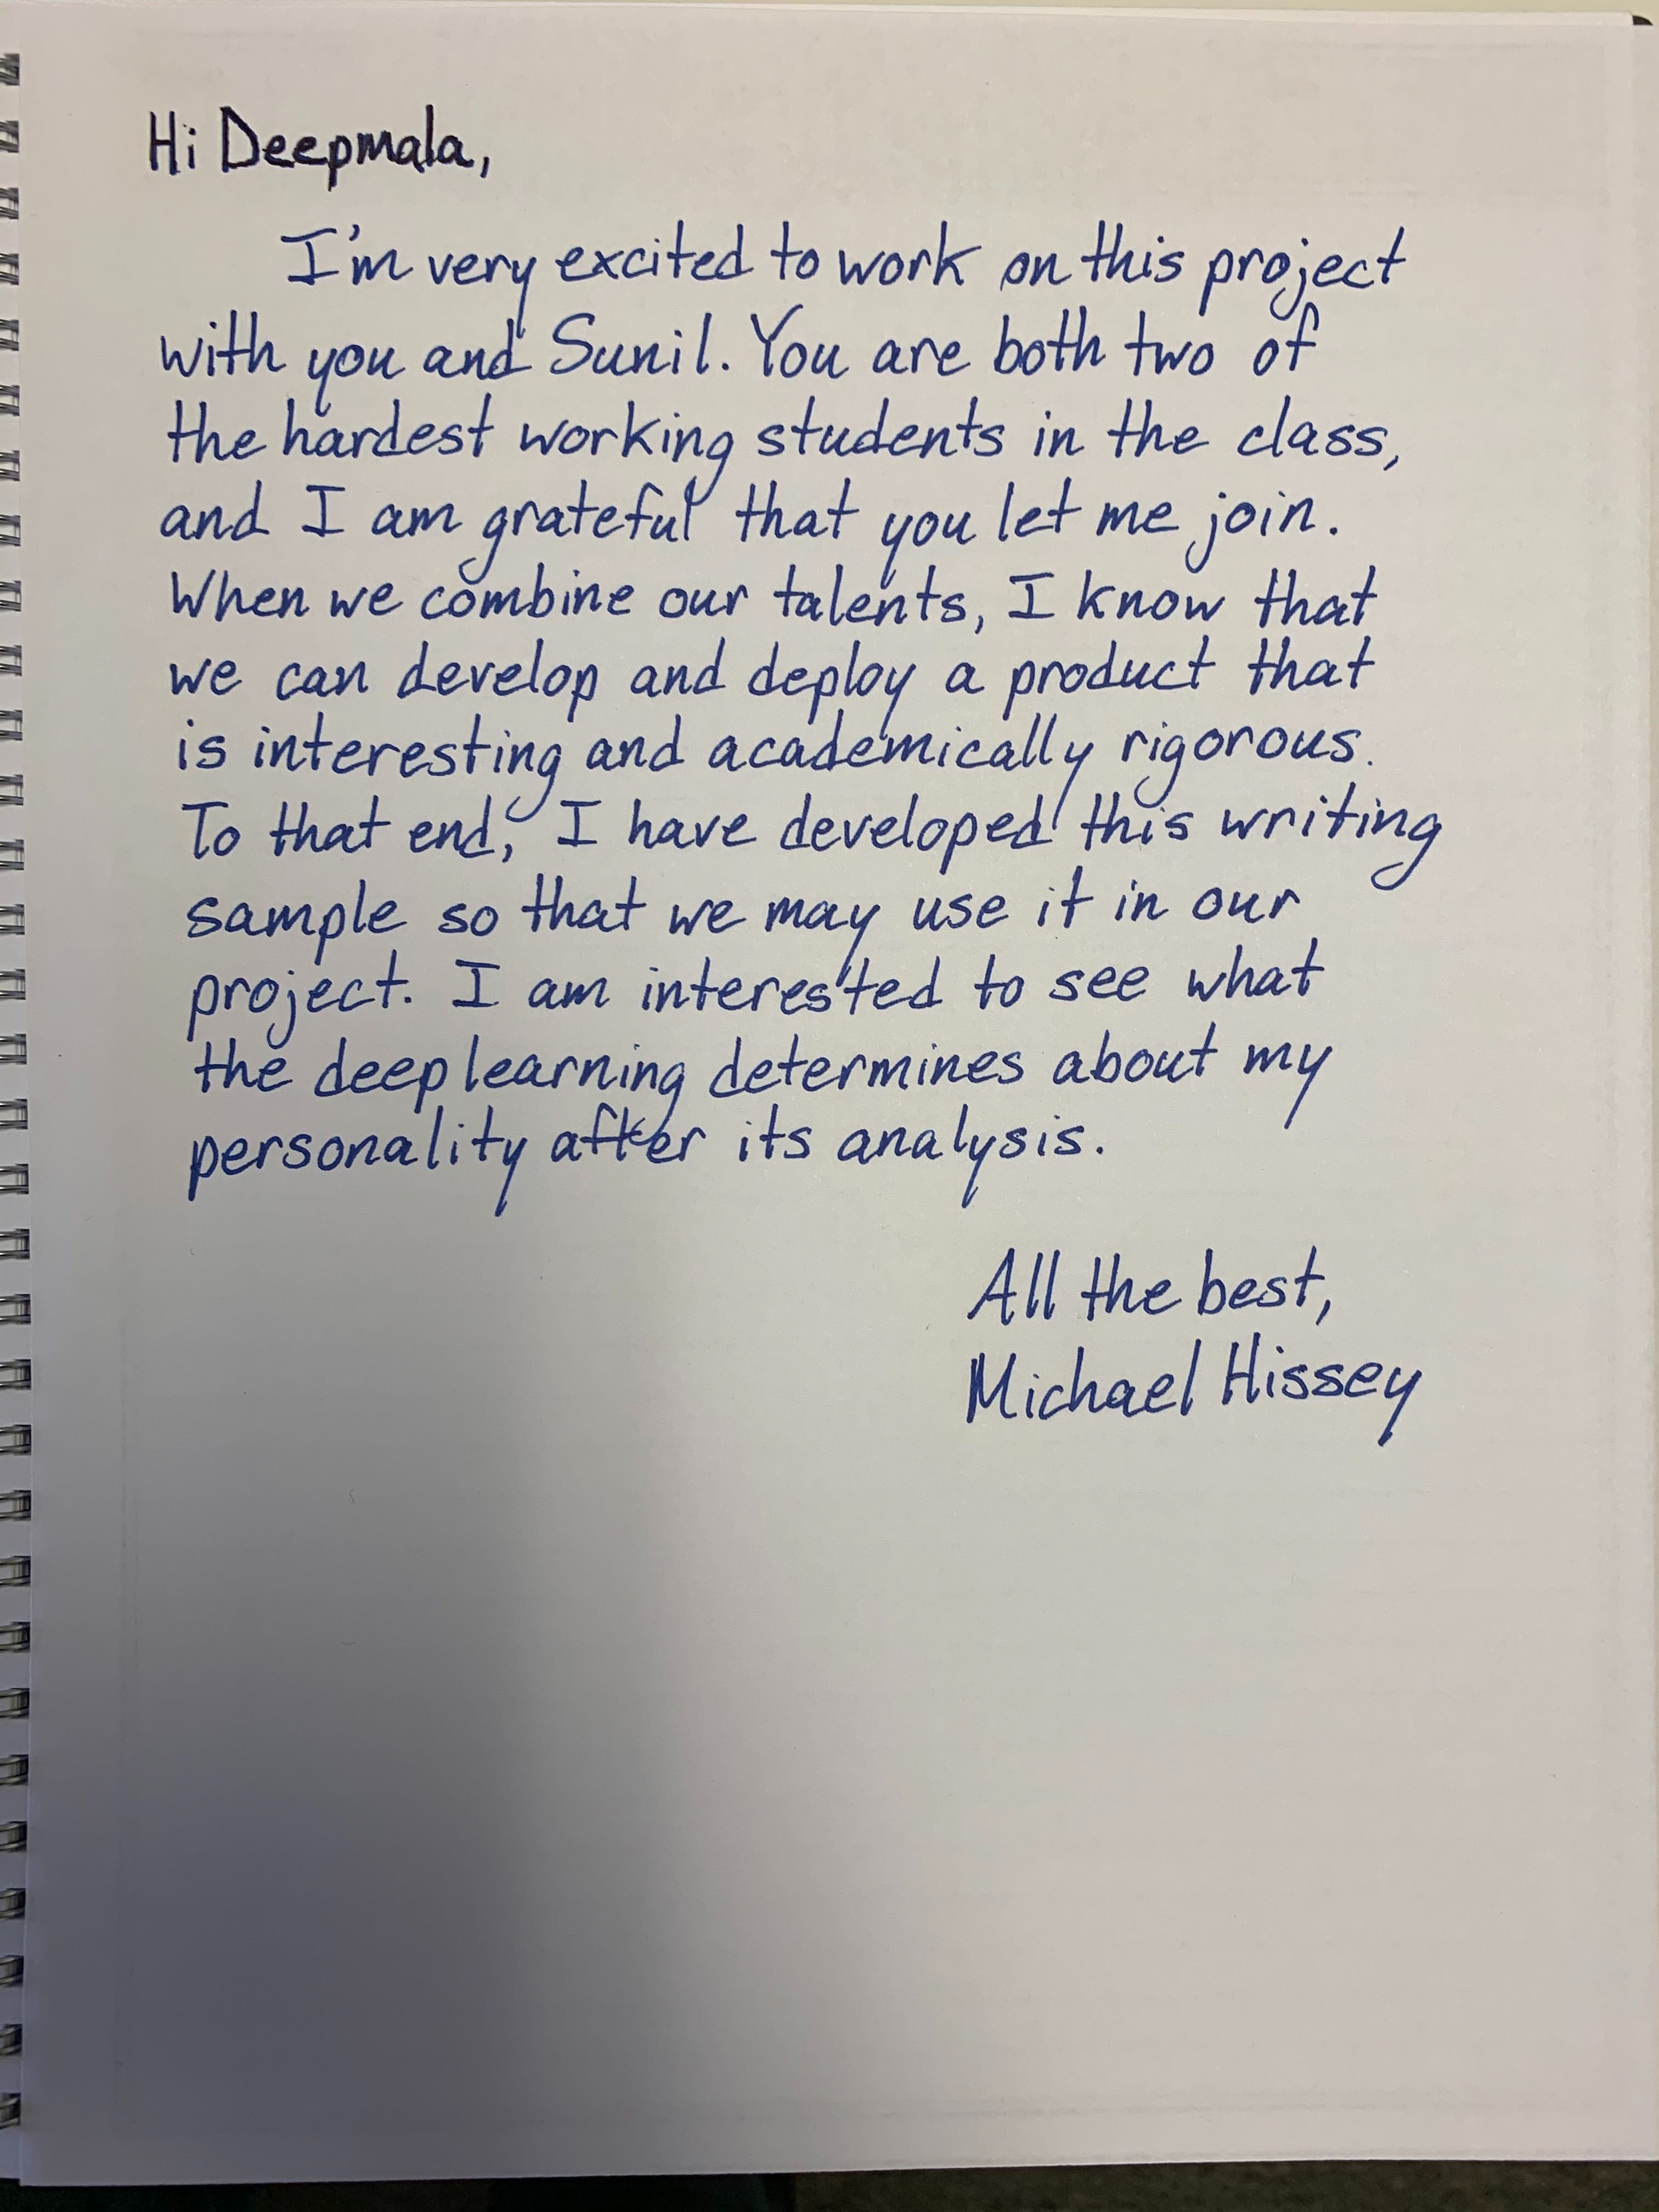 Hi Deepmala,
I'm very excited to work on this project
with you and Sunil. You are both two of
the hardest working students in the class,
and I am grateful that you let me join.
When we combine our talents, I know that
we can develop and deploy a product that
is interesting and academically rigorous.
To that end, I have developed this writing
sample so that we may use it in our
project. I am interested to see what
the deep learning determines about my
personality after its analysis.
All the best,
Michael Hissey